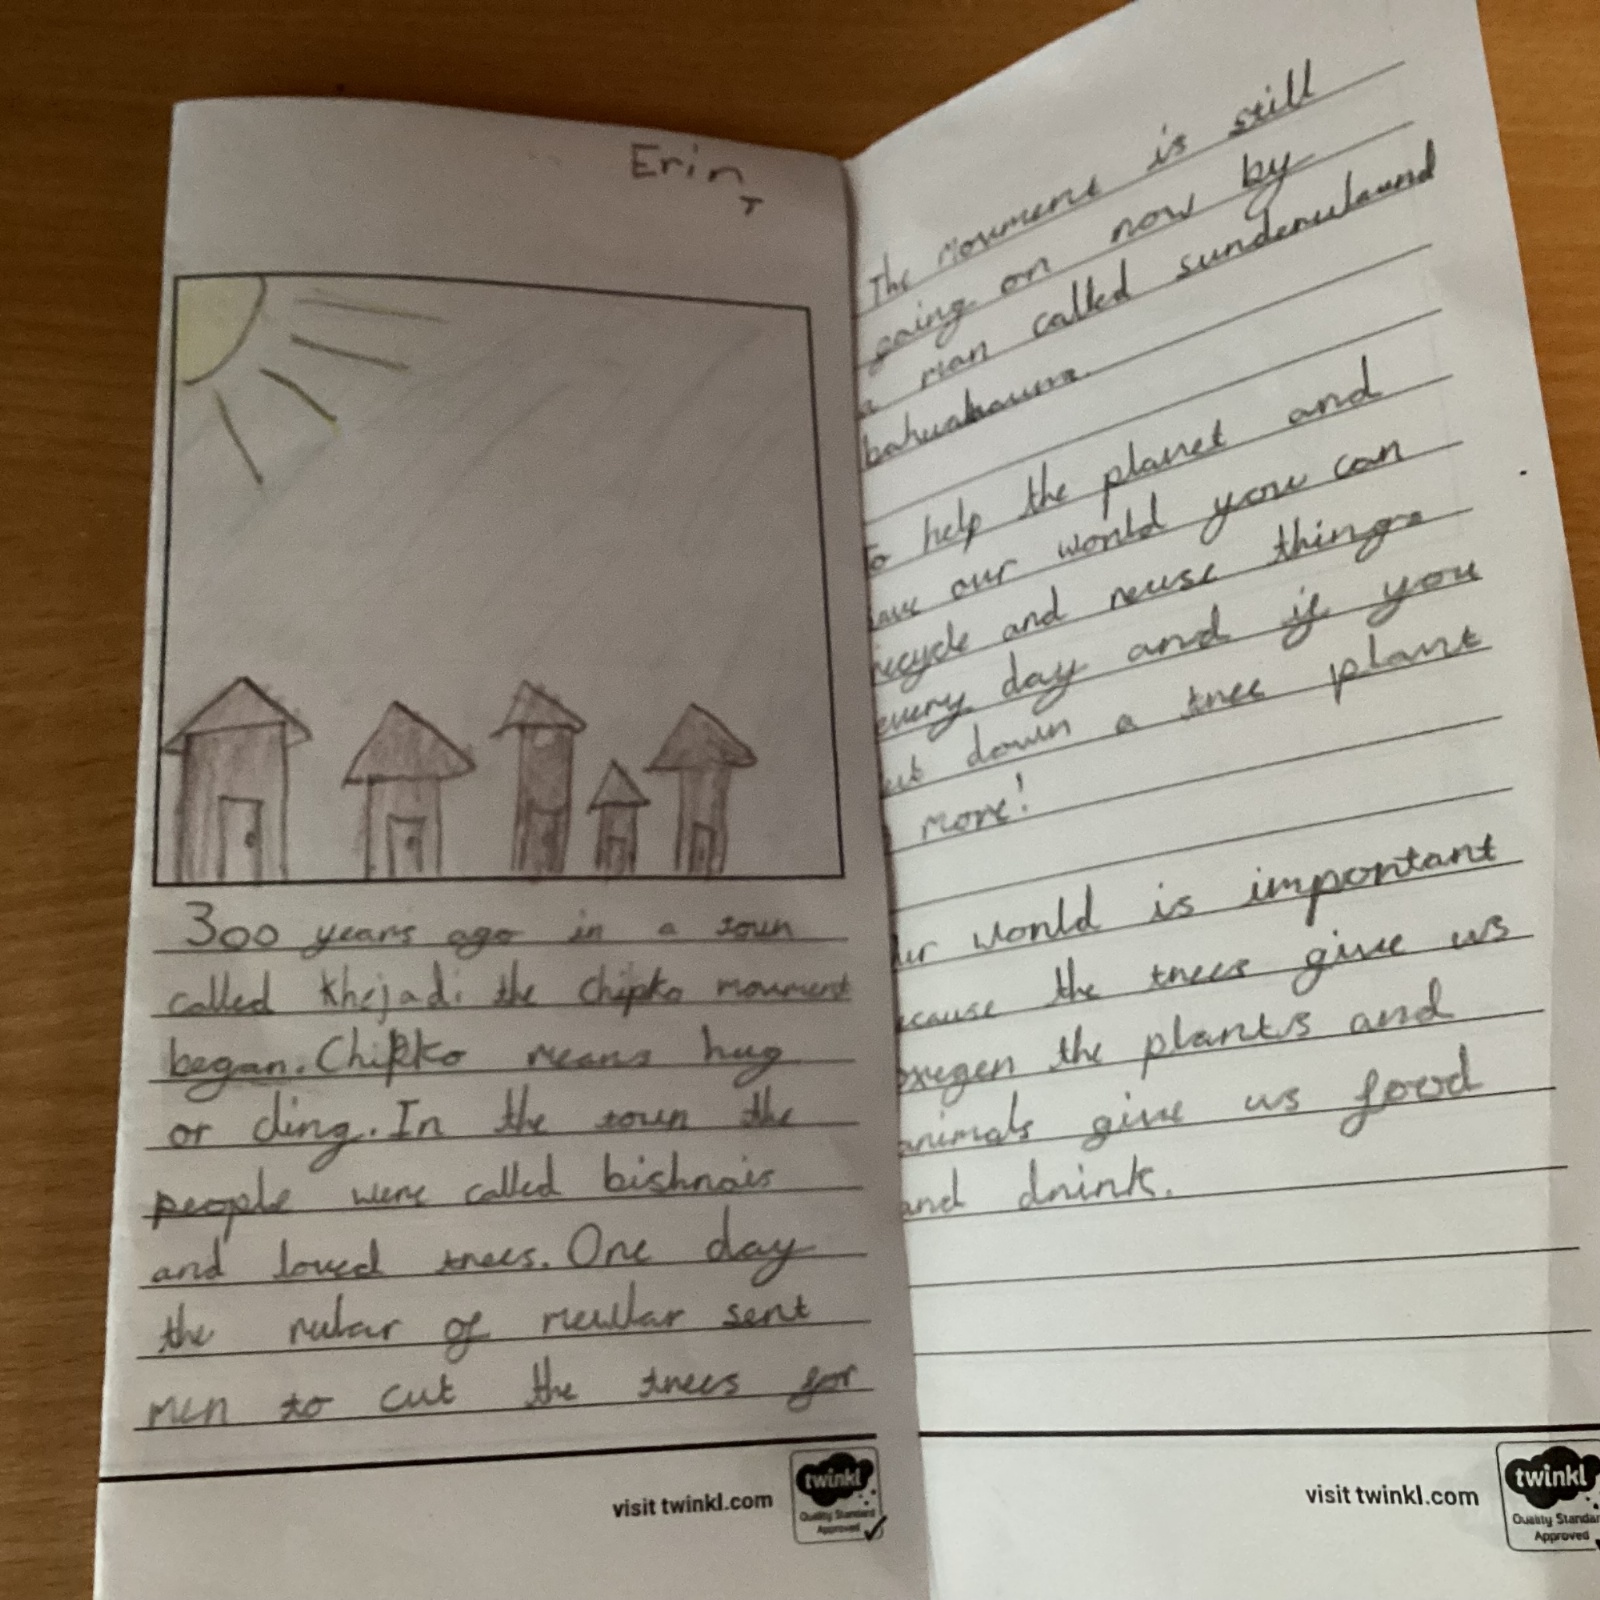 Erin
T
300 years ago in a toun
called Khejadi the Chipko movment
began. Chipko means hug
or cling. In the toun the
people were called bishnois
and loved trees. One day
the rular of
sent
men to cut the trees for
visit twinkl.com
twinkl
Quality Standard
Approved
The movment is still
going on now by
a man called
to help the planet and
save our world you can
recycle and reuse things
every day and if you
cut down a tree plant
more!
our world is important
because the trees give us
oxegen the plants and
animals give us food
and drink.
visit twinkl.com
twinkl
Quality Standar
Approved